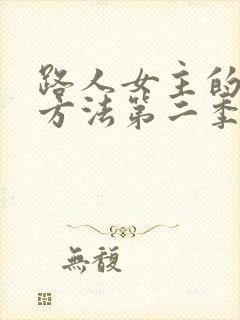 路人女主的
方法第二季
無馥